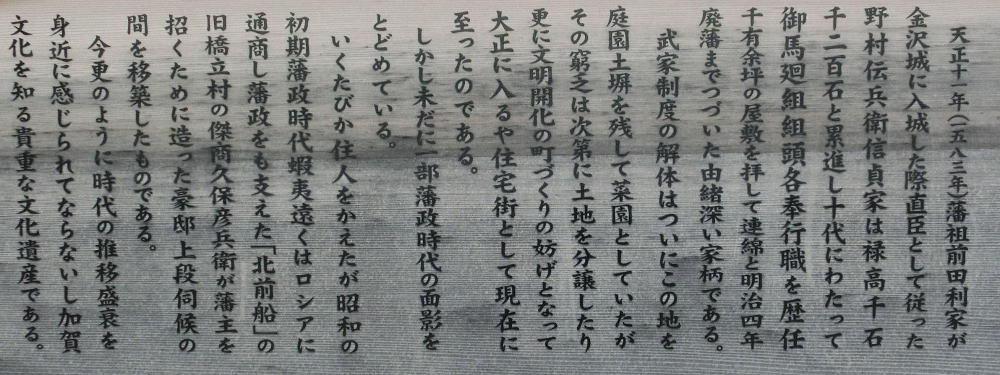 天正十一年(一五八三年藩祖前田利家が
金沢城に入城した際直臣として従った
野村伝兵衛信貞家は禄高千石
千二百石と累進し十代にわたって
御馬廻組組頭各奉行職を歴任
千有余坪の屋敷を拝して連綿と明治四年
廃藩までつづいた由緒深い家柄である。
武家制度の解体はついにこの地を
庭園土塀を残して菜園としていたが
その窮乏は次第に土地を分譲したり
更に文明開化の町づくりの妨げとなって
大正に入るや住宅街として現在に
至ったのである。
しかし未だに一部藩政時代の面影を
とどめている。
いくたびか住人をかえたが昭和の
初期藩政時代蝦夷遠くはロシアに
通商し藩政をも支えた「北前船」の
旧橋立村の傑商久保彦兵衛が藩主を
招くために造った豪邸上段伺候の
間を移築したものである。
今更のように時代の推移盛衰を
身近に感じられてならないし加賀
文化を知る貴重な文化遺産である。